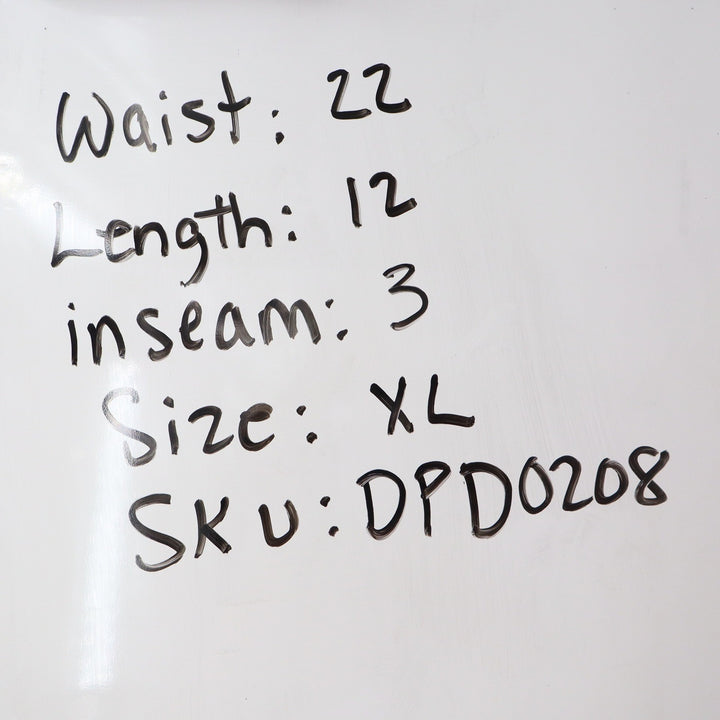 Waist: 22
Length: 12
inseam: 3
Size: XL
SKU: DPD0208